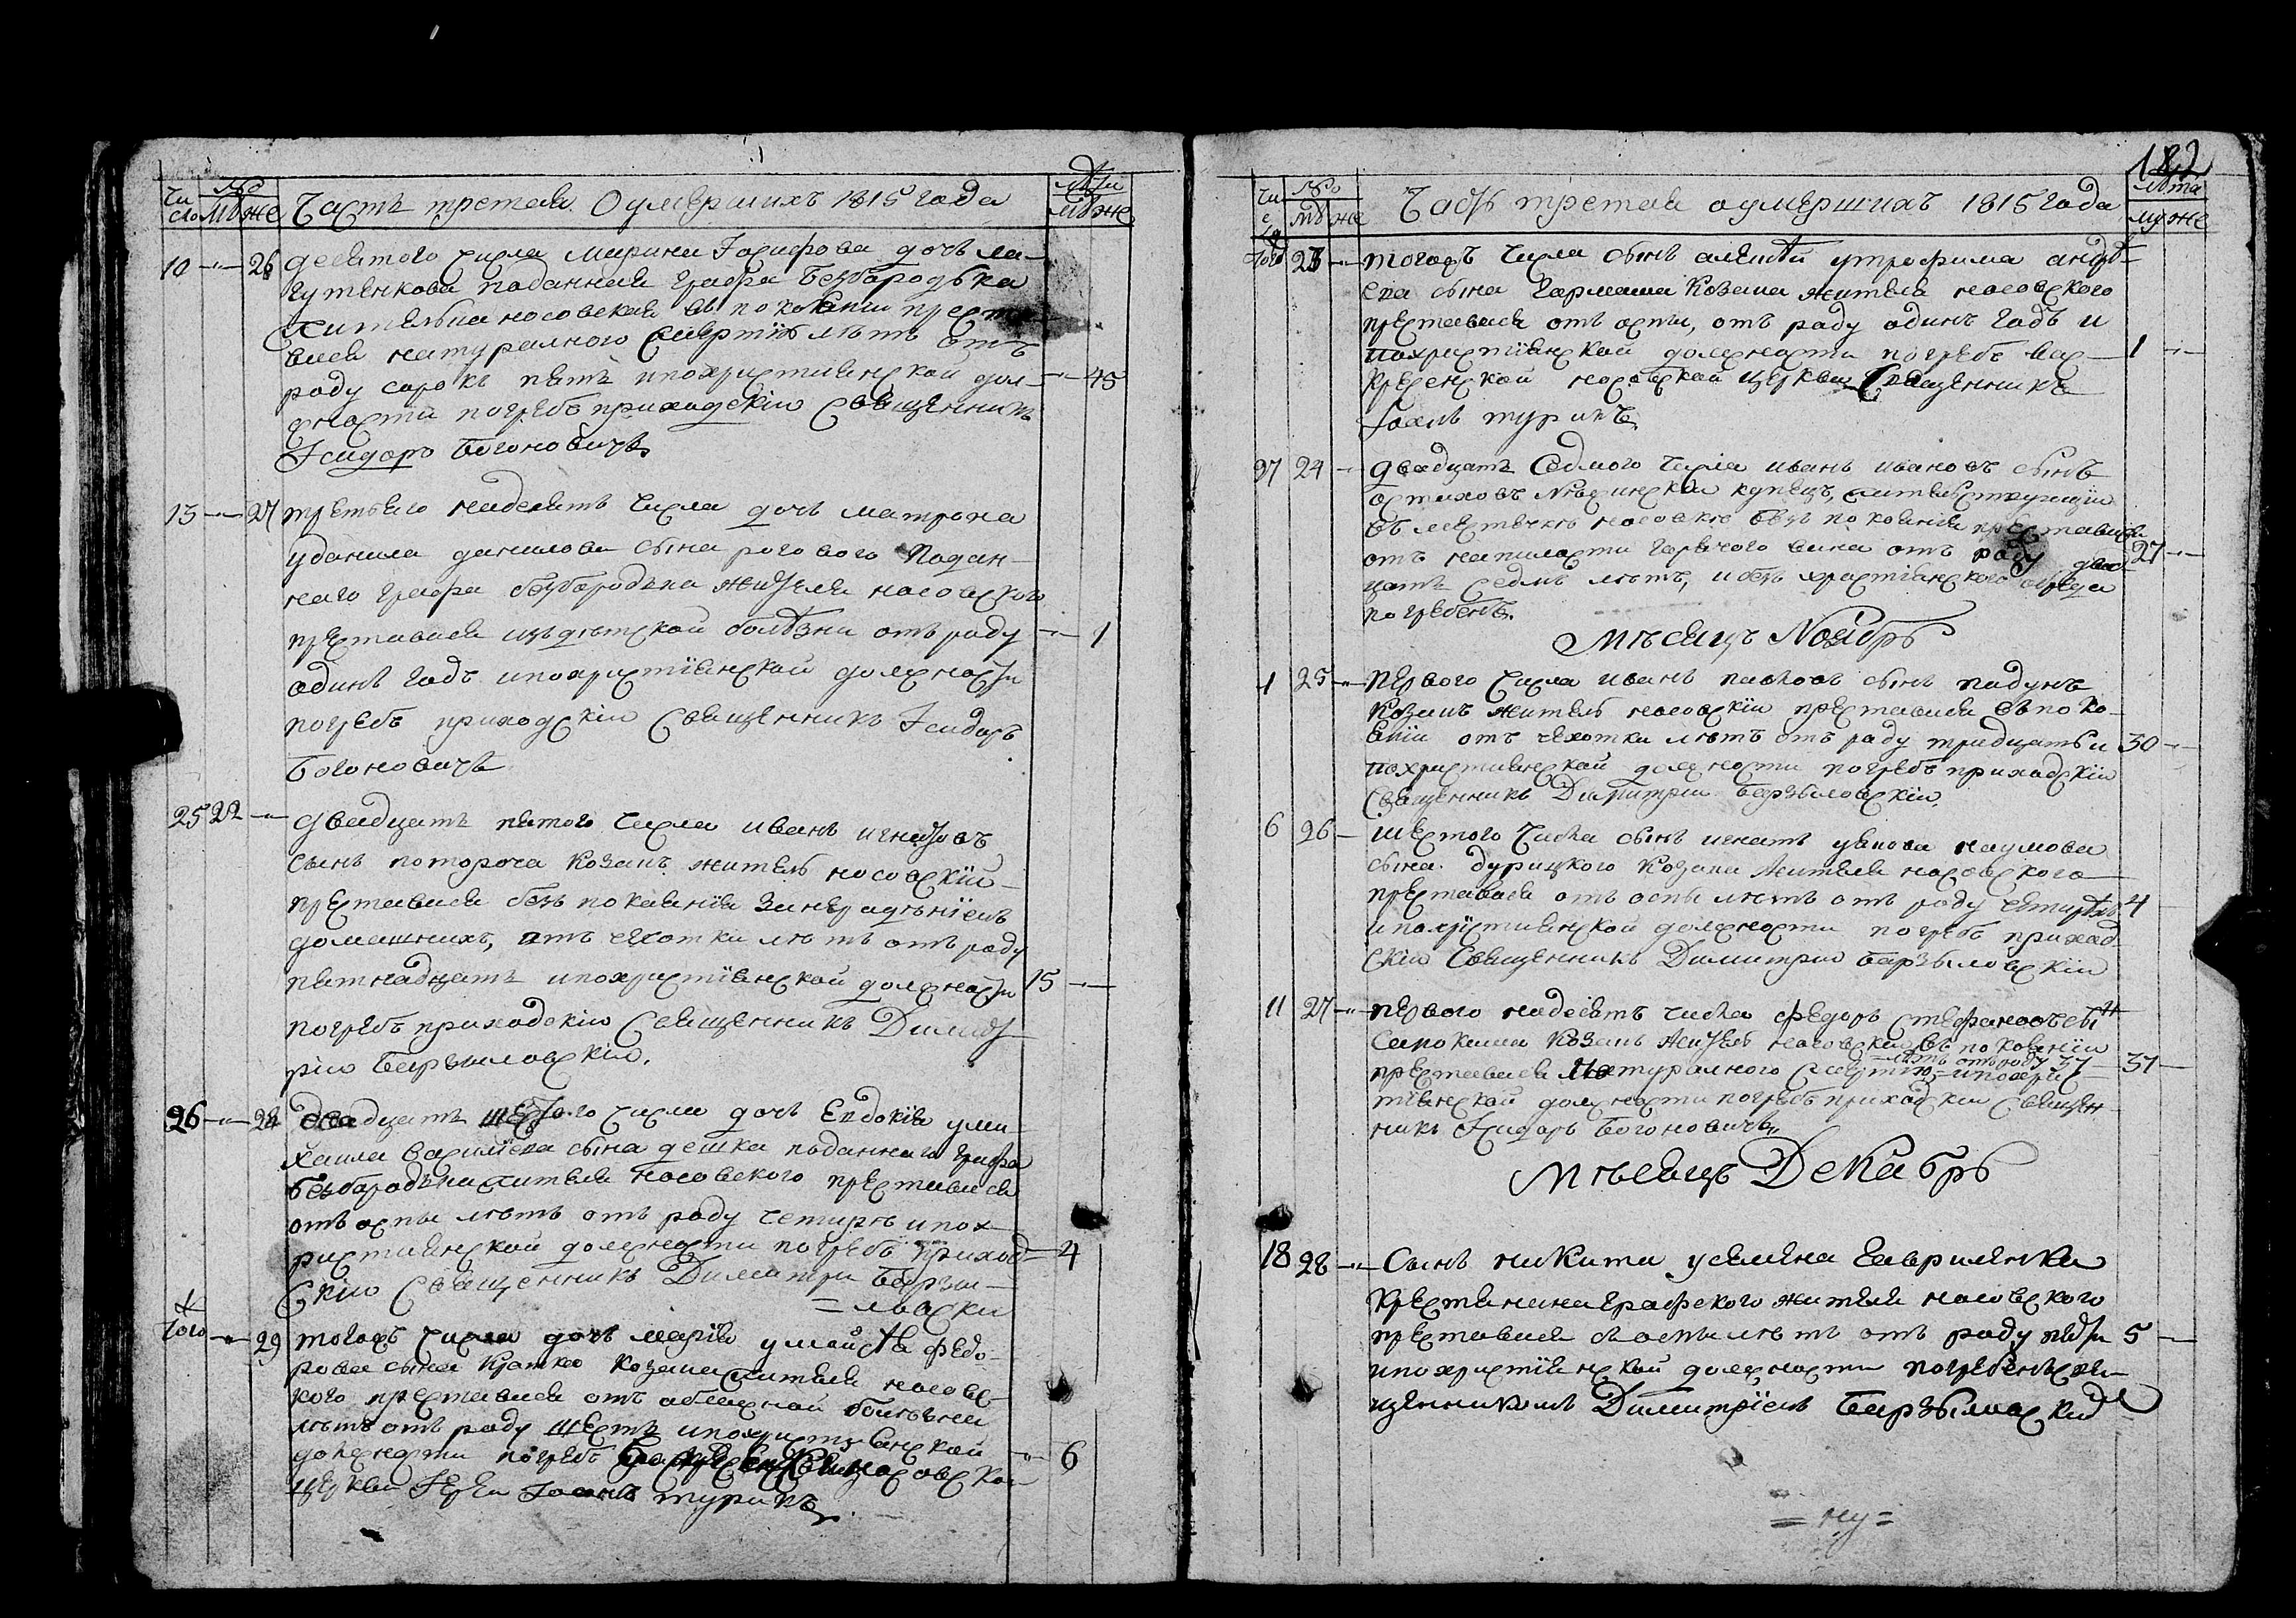 Чи сло № Мѵ же Часть третея О умершихъ 1815 года лѣта Мѵ же
10 26 десятого числа Марина Іосифова дочь ла-
гутенкова поданная Графа Безбародька
жителька носовская въ покояніи преста-
вися натуралною смертію лѣтъ отъ
роду сорокъ пять ипохристиянской дол- 45
жности погребъ приходскій Священникъ
Ісидоръ Богоновичъ
13 27 третьего надесять числа дочь матрона
уданила данилова сына рогового Подан-
наго графа безбородька жителя носовского
преставися издѣтской болѣзни отъ роду 1
одинъ годъ ипохристіянской должности
погребъ приходскій Священникъ Ісидоръ
Богоновичъ
25 22 двадцать пятого числа иванъ игнатовъ
сынъ потороча козакъ житель носовскій
преставися безъ покаянія занерадѣніемъ
домашнихъ, отъ чехотки лѣтъ отъ роду
пятнадцать ипохристіянской должности 15
погребъ приходскій Священникъ Димит-
рій Барзыловскій.
26 28 двадцать шестого числа дочь Евдокія уми-
хаила василіева сына дешка поданного графа
безбародька жителя носовского преставися
отъ оспы лѣтъ отъ роду четири ипох-
ристиянской должности погребъ приход- 4
скій Священникъ Димитри Барзы-
=ловски
того 29 тогожъ числа дочь марія умойсѣя федо-
рова сына кратко козака жителя носовс-
кого преставися отъ облежной болѣзни
лѣтъ отъ роду шесть ипохристіянской
должности погребъ носовской 6
церкви Іерей Іоаннъ турикъ
182
Чи сло № мѵ же Часть третея оумершихъ 1815 года лѣта мѵ же
того 23 тогожъ числа сынъ алексѣй утрофима андрѣ-
ева сына Гармаша Козака жителя носовского
преставися отъ оспы, отъ роду одинъ годъ и
похристіянской должности погребъ вос- 1
кресенской носовской церкви Священникъ
Іоанъ турикъ
27 24 двадцать Седмого числа иванъ ивановъ сынъ
остиховъ Нѣжинскій купецъ, жительствующій
въ местечкѣ носовкѣ безъ покоянія преставися
отъ напилости горячого вина отъ роду двад- 27
цать седмъ лѣтъ, и безъ христіянского обряда
погребенъ.
Мѣсяцъ Ноябръ
1 25 Первого числа иванъ павловъ сынъ падунъ
Козакъ житель носовскій преставися въ поко-
яніи отъ чехотки лѣтъ отъ роду тридцать и 30
похристиянской должности погребъ приходскій
Священникъ Димитрій Барзыловскій.
6 26 шестого числа сынъ игнатъ уякова наумова
сына дурицкого Козака жителя носовского
преставися отъ оспы лѣтъ отъ роду четирѣхъ 4
ипохристиянской должности погребъ приход
скій Священникъ Димитрій Барзыловскій
11 27 первого надесять числа федоръ Стефановъ сынъ
Сапокиша Козакъ житель носовскій въ покоянію
преставися Натуралного смертію =лѣтъ отъ роду 37= ипохрис- 37
тіянской должности погребъ приходскій Священ-
никъ Ісидоръ Богоновичъ
Мѣсяцъ Декабръ
18 28 Сынъ никита усемена Гавриленка
крестянина графского жителя носовского
преставися съ оспы лѣтъ отъ роду пять 5
ипохристіянской должности погребенъ свя-
щенникомъ Димитріемъ Барзыловским
=ну=